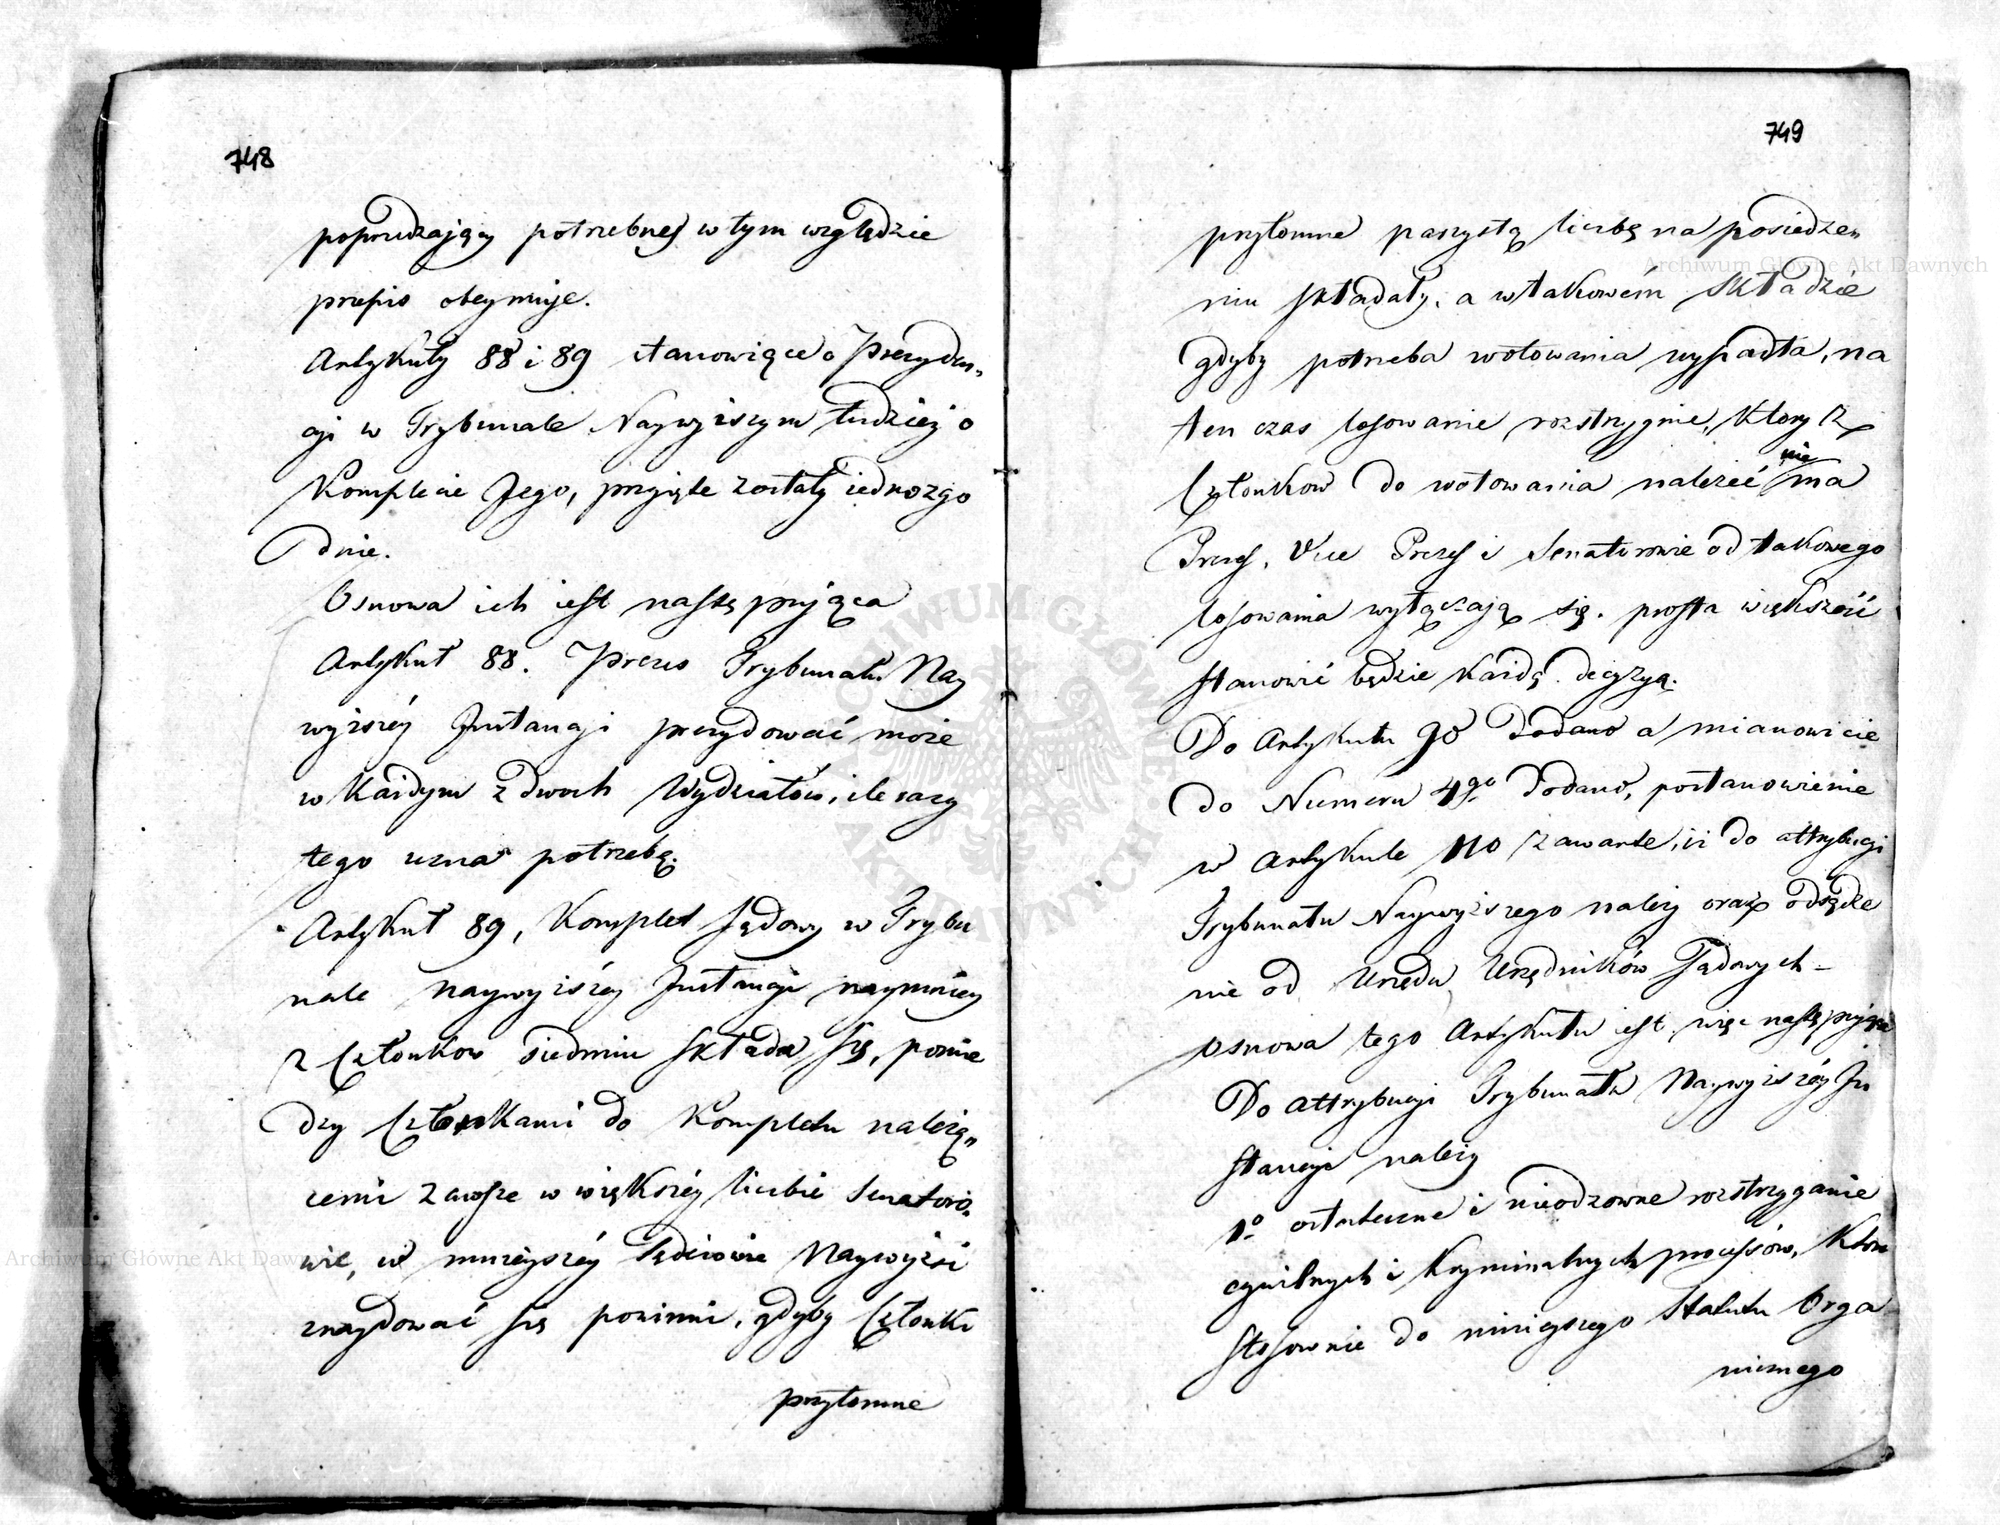 748
poprzedzający potrzebney w tym względzie
przepis obeymuje.
Artykuły 88 i 89 stanowiące o Prezyden„
cji w Trybunale Naywyższym tudzież o
Komplecie Jego, przyięte zostały iednozgo
dnie.
Osnowa ich iest następująca
Artykuł 88. Prezes Trybunału Nay
wyższéy Instancji prezydować może
w Każdym z dwóch Wydziałów, ile razy
tego uzna potrzebę.
Artykuł 89, Komplet Sądowy w Trybu
nale naywyższéy Instancji naymniey
z Członkow siedmiu składa się, pomie
dzy Członkami do Kompletu należą„
cemi zawsze w większéy liczbie Senatoro„
wie, w mnieyszéy Sędziowie Naywyżsi
znaydować się powinni, gdyby Członki
przytomne
749
przytomne parzystą liczbę na posiedze„
niu składały, a w takowém składzie
gdyby potrzeba wotowania wypadła, na
ten czas losowanie rozstrzygnie, który z
nie
Członkow do wotowania należéć ma
Prezes, Vice Prezes i Senatorowie od takowego
losowania wyłączają się. prosta większość
stanowić będzie każdą decyzyą.
Do Artykułu 90 Dodano a mianowicie
do Numeru 4go Dodano, postanowienie
w Artykule 110 zawarte, iż do attrybucji
Trybunału Naywyższego należy oraz odsądze
nie od Urzędu Urzędników Sądowych –
osnowa tego Artykułu iest więc następująca
Do attrybucji Trybunału Naywyższéy In
stancji należy
1º ostateczne i nieodzowne rozstrzyganie
cywilnych i kryminalnych processów, które
stosownie do ninieyszego Statutu Orga
nicznego
Archiwum Główne Akt Dawnych
Archiwum Główne Akt Dawnych
ARCHIWUM GŁÓWNE AKT DAWNYCH